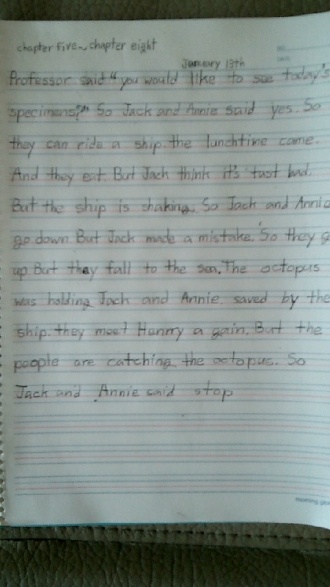 chapter Five~chapter eight
January 13th
Professor said "you would like to see today's
specimens?" So Jack and Annie said yes. So
they can ride a ship. the lunchtime came.
And they eat. But Jack think it's tast bad.
But the ship is shaking. So Jack and Annie
go down But Jack made a mistake. So they go
up But they fall to the sea. The octopus
was holding Jack and Annie. saved by the
ship. they meet Henry a gain. But the
people are catching the octopus. So
Jack and Annie said stop